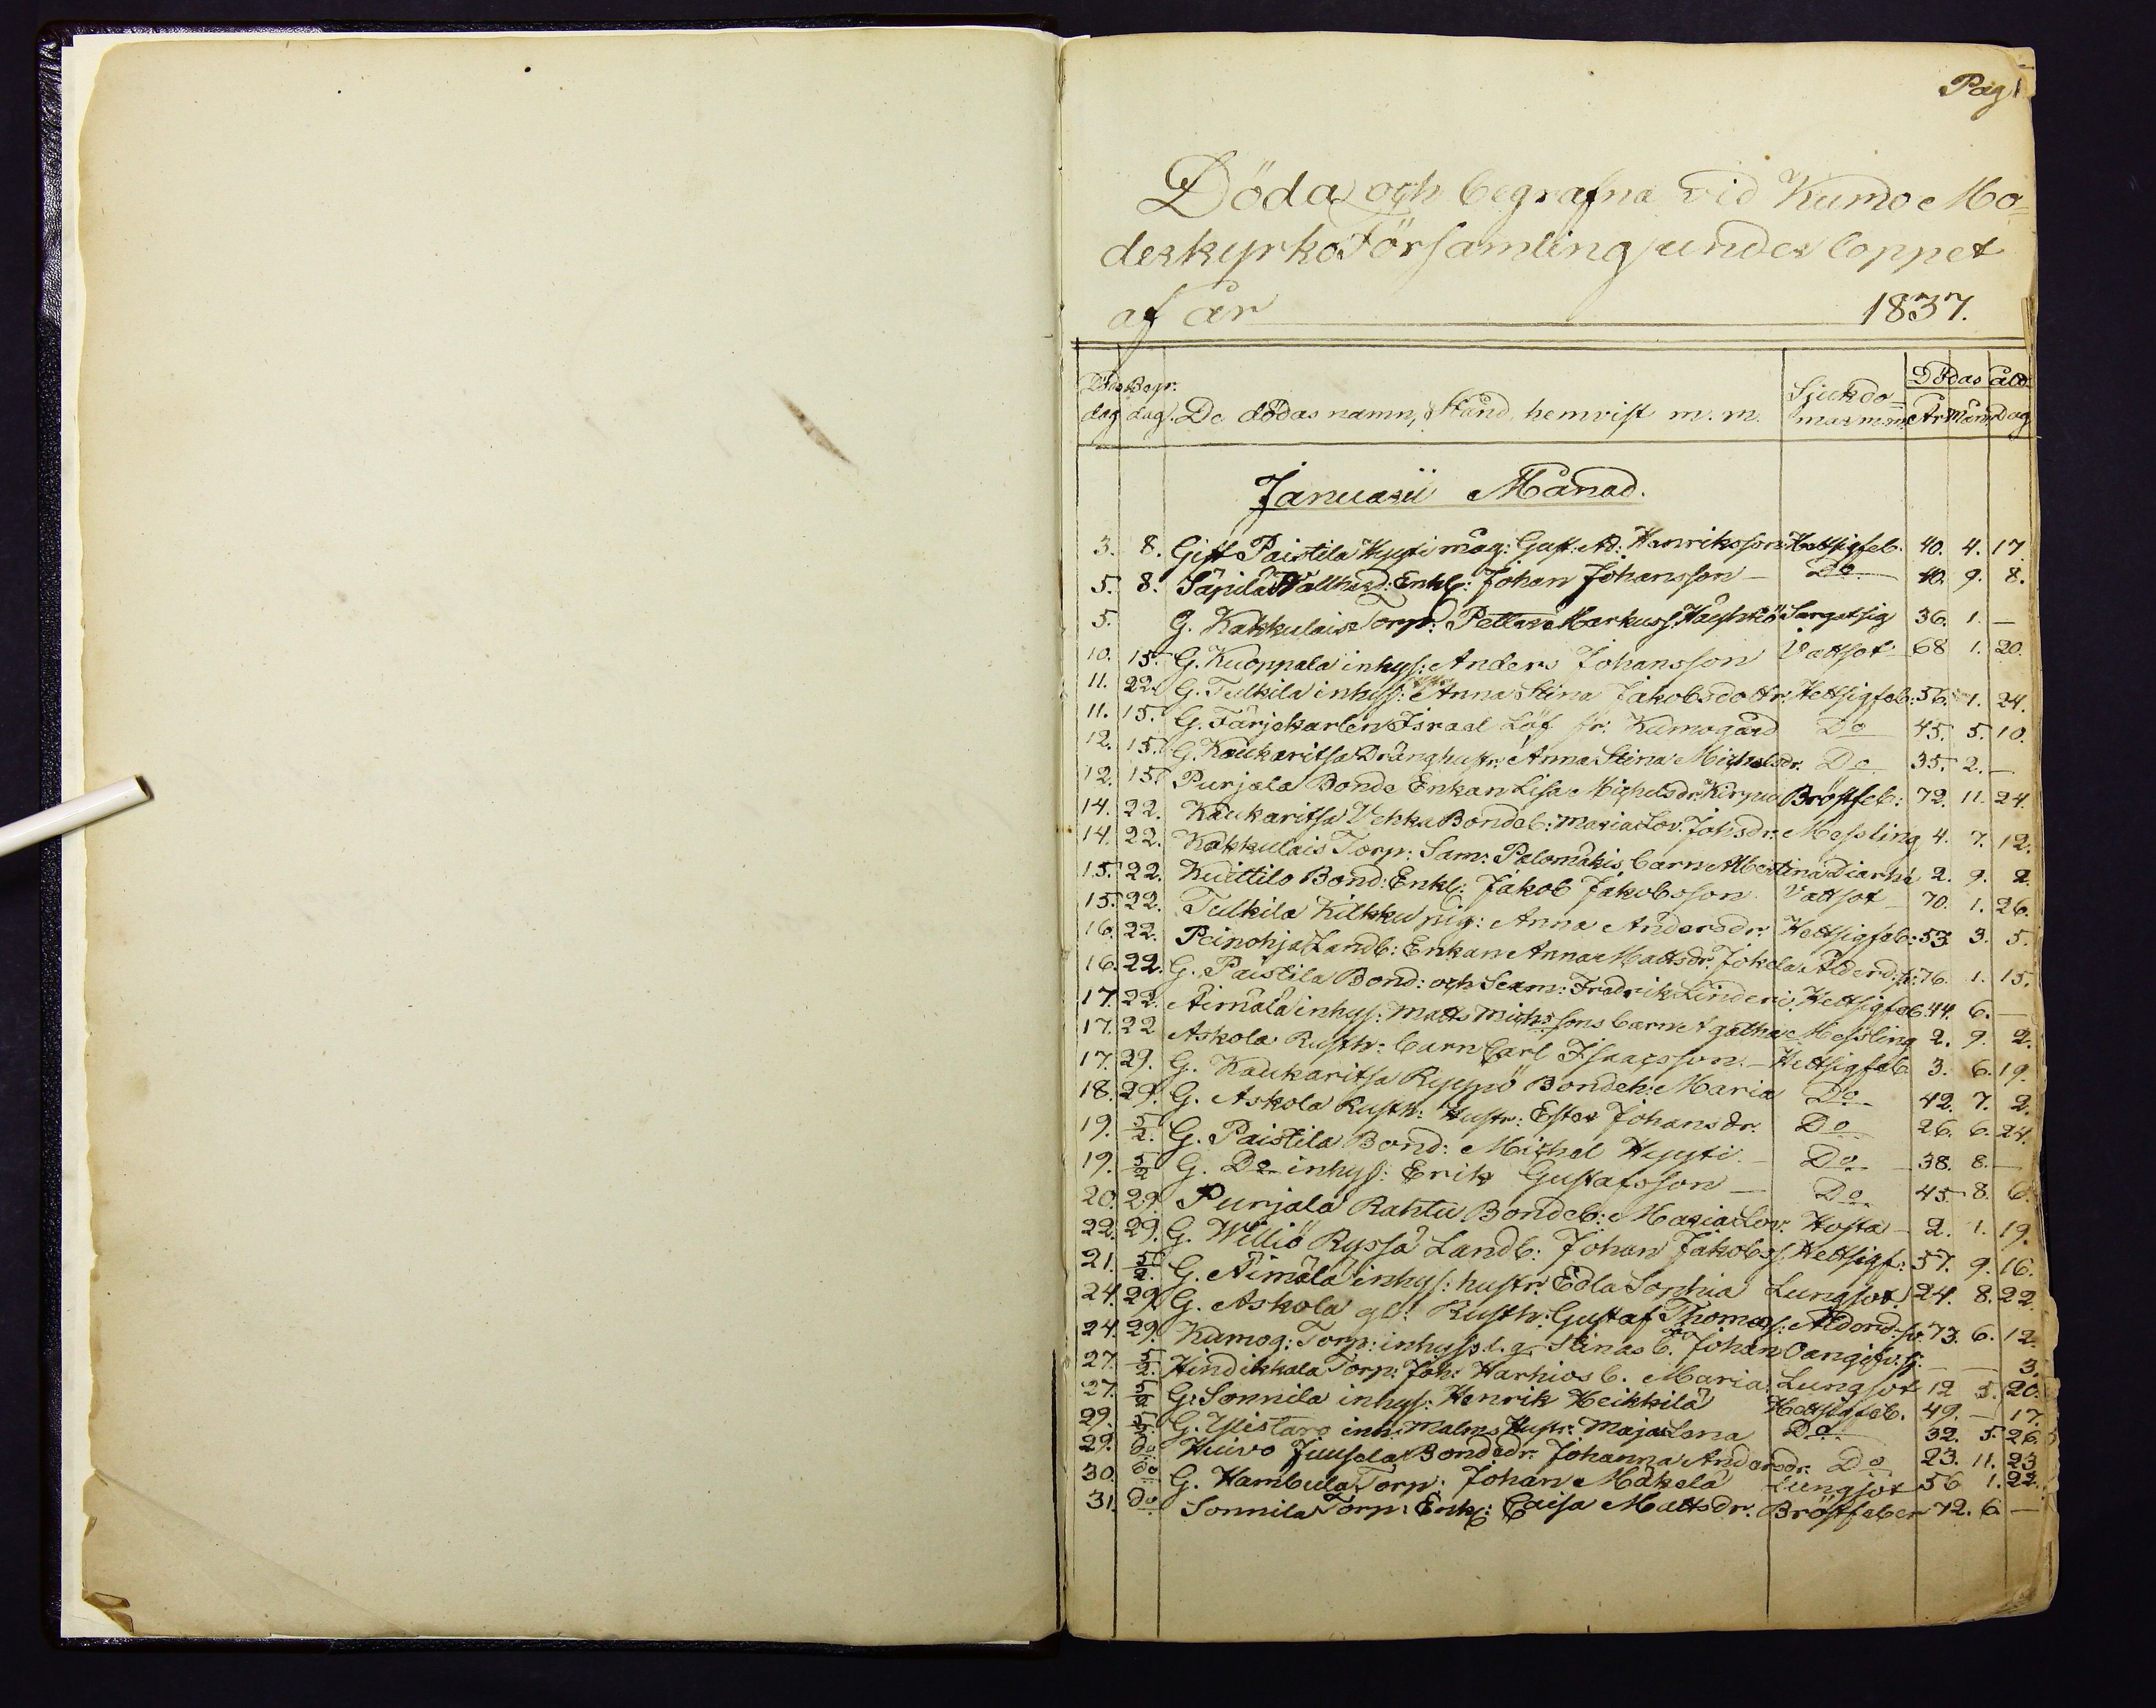 Pag 1
Döda och begrafna vid Kumo Mo-
derkyrko Församling under loppet
af år 1837.
Döds Begr. Sjukdo- Dödas åld
dag dag. De dödas namn, stånd, hemvist m. m. mar m.m. År Mån Dag
Januarii Månad.
3. 8. Gift Paistila Hyyti måg: Gust: Ad: Henriksson Hettsigfeb. 40. 4. 17
5. 8. Säpilä Wallherd: Enkl: Johan Johansson Do 40. 9. 8.
5. G. Kakkulais Torp: Petter Markuss. Sargotsig 36. 1. —
10. 15. G. Kuoppala inhys: Anders Johansson Vattsot 68 1. 20.
11. 22. G. Tulkila inhys: Anna Stina Jakobsdottr: Hettsigfeb: 56. 1. 24.
11. 15. G. Färjekarlen Israel Löf fr: Kumogård Do 45. 5. 10.
12. 15. G. Kaukaritsa Dränghustr: Anna Stina Michelsdr. Do 35. 2. —
12. 15. Purjala Bonde Enkan Lisa Michelsdr. Bröstfeb: 72. 11. 24.
14. 22. Kaukaritsa Vehka Bondeb: Maria Lov. Johsdr. Messling 4. 7. 12.
14. 22. Kakkulais Torp: Sam: Palomäkis barn Albertina Diarhé 2. 9. 2.
15. 22. Kuittilo Bond: Enkl: Jakob Jakobsson Vattsot 70. 1. 26.
15. 22. Tulkila Kilkku pig: Anna Andersdr: Hettsigfeb: 53 3. 5.
16. 22. Peinohja Landb: Enkan Anna Mattsdr. Jokela Ålderd: 76. 1. 15.
16. 22. G. Paistila Bond: och Sexm: Fredrik Linderi Hettsigfeb. 44. 6. —
17. 22. Äimälä inhys: Matts Michssons barn Agatha Messling 2. 9. 2.
17. 22 Askola Rusth: barn Carl Isaacsson. Hettsigfeb 3. 6. 19.
17. 29. G. Kaukaritsa Ryypö Bondeh: Maria Do 42. 7. 2.
18. 29. G. Askola Rusth: Hustr: Ester Johansdr. Do 26. 6. 24.
19. 5/2. G. Paistila Bond: Michel Hyyti Do 38. 8. —
19. 5/2 G. Do inhys: Erik Gustafsson Do 45. 8. 6.
20. 29. Purjala Rahtu Bondeb: Maria Lov. Hosta 2. 1. 19.
22. 29. G. Williö Ryssä Landb: Johan Jakobss. Hettsigf: 57. 9. 16.
21. 5/2. G. Äimälä inhys: hustr: Edla Sophia Lungsot. 24. 8. 22.
24. 29. G. Askola gl: Rusth: Gustaf Thomass: Ålderd: 73. 6. 12.
24. 29. Kumog: Torp: inhys p. l. g. Stinas b. Johan Oangifv. s. — — 3.
27. 5/2. Hindikkala Torp: Joh: Harhios b. Maria Lungsot 12 5. 20.
27. 5/2 G: Sonnila inhys: Henrik Heikkilä Hettsigfeb. 49. — 17.
29. 5/2. G. Ylistaro inh: Malms Hustr: Maja Lena Do 32. 5. 26.
29. do Huivo Juusela Bondedr. Johanna Andersdr. Do 23. 11. 23
30. do G. Hambula Torp: Johan Mäkelä Lungsot 56 1. 22.
31. do Sonnila Torp: Enk: Caisa Mattsdr. Bröstfeber 72. 6. —